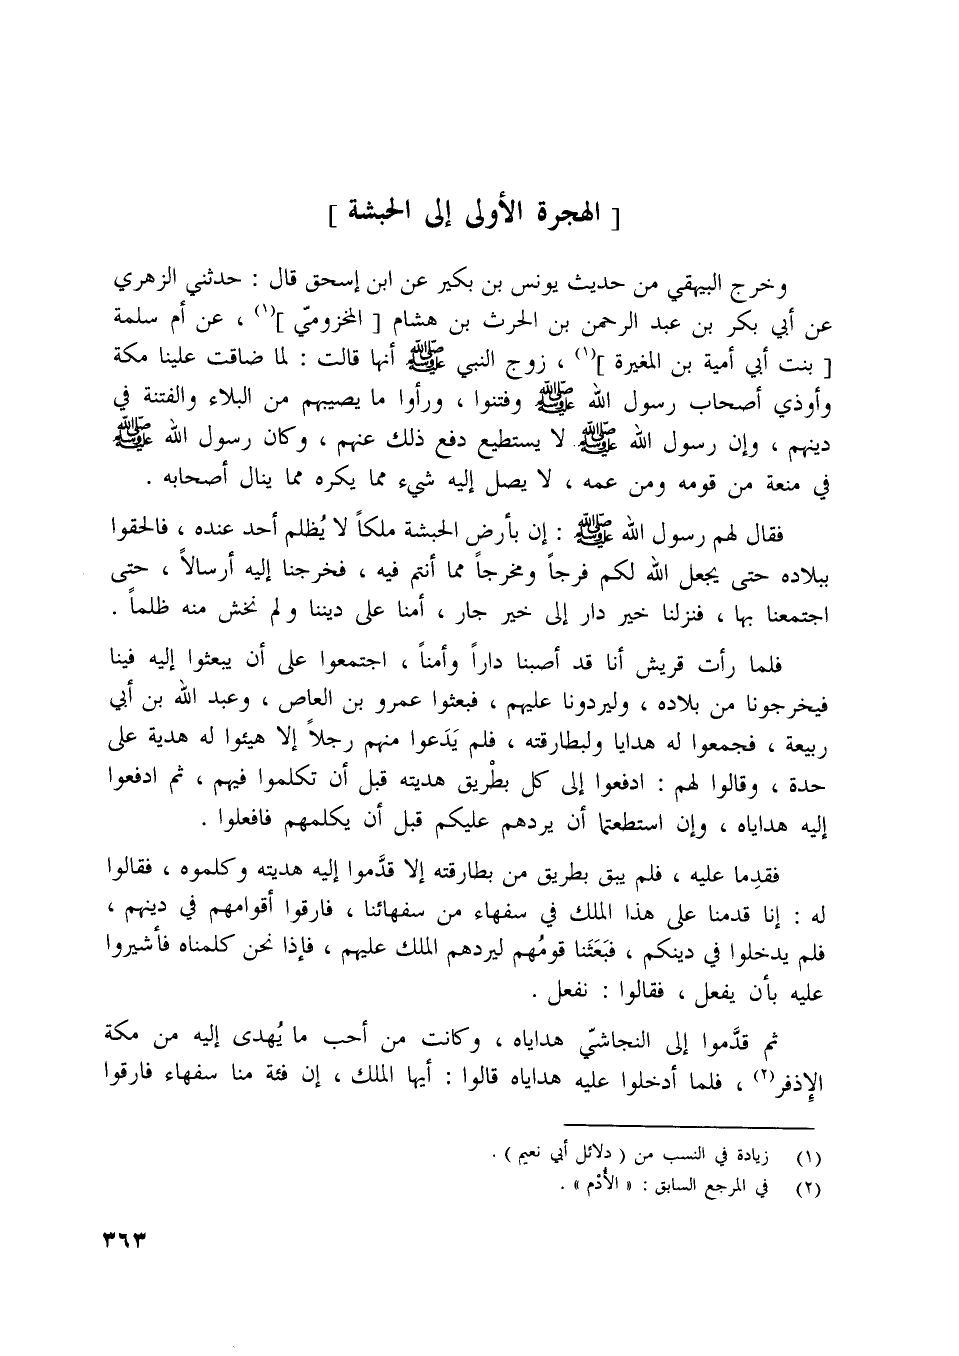 [ الهجرة الأولى إلى الحبشة ]
وخرج البيهقي من حديث يونس بن بكير عن ابن إسحق قال : حدثني الزهري
عن أبي بكر بن عبد الرحمن بن الحرث بن هشام [ المخزوميّ ](١) ، عن أم سلمة
[ بنت أبي أمية بن المغيرة ](١) ، زوج النبي ﷺ أنها قالت : لما ضاقت علينا مكة
وأوذي أصحاب رسول الله ﷺ وفتنوا ، ورأوا ما يصيبهم من البلاء والفتنة في
دينهم ، وإن رسول الله ﷺ لا يستطيع دفع ذلك عنهم ، وكان رسول الله ﷺ
في منعة من قومه ومن عمه ، لا يصل إليه شيء مما يكره مما ينال أصحابه .
فقال لهم رسول الله ﷺ : إن بأرض الحبشة ملكاً لا يُظلم أحد عنده ، فالحقوا
ببلاده حتى يجعل الله لكم فرجاً ومخرجاً مما أنتم فيه ، فخرجنا إليه أرسالاً ، حتى
اجتمعنا بها ، فنزلنا خير دار إلى خير جار ، أمنا على ديننا ولم نخش منه ظلماً .
فلما رأت قريش أنا قد أصبنا داراً وأمناً ، اجتمعوا على أن يبعثوا إليه فينا
فيخرجونا من بلاده ، وليردونا عليهم ، فبعثوا عمرو بن العاص ، وعبد الله بن أبي
ربيعة ، فجمعوا له هدايا ولبطارقته ، فلم يَدَعوا منهم رجلاً إلا هيئوا له هدية على
حدة ، وقالوا لهم : ادفعوا إلى كل بطْريق هديته قبل أن تكلموا فيهم ، ثم ادفعوا
إليه هداياه ، وإن استطعتما أن يردهم عليكم قبل أن يكلمهم فافعلوا .
فقدِما عليه ، فلم يبق بطريق من بطارقته إلا قدَّموا إليه هديته وكلموه ، فقالوا
له : إنا قدمنا على هذا الملك في سفهاء من سفهائنا ، فارقوا أقوامهم في دينهم ،
فلم يدخلوا في دينكم ، فبَعَثَنا قومُهم ليردهم الملك عليهم ، فإذا نحن كلمناه فأشيروا
عليه بأن يفعل ، فقالوا : نفعل .
ثم قدَّموا إلى النجاشيّ هداياه ، وكانت من أحب ما يُهدى إليه من مكة
الإِذفر(٢) ، فلما أدخلوا عليه هداياه قالوا : أيها الملك ، إن فئة منا سفهاء فارقوا
(١) زيادة في النسب من ( دلائل أبي نعيم ) .
(٢) في المرجع السابق : « الأُدْم » .
٣٦٣